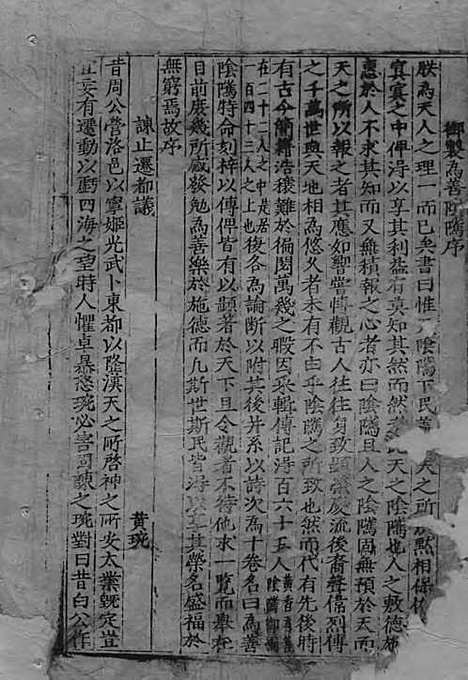 御製為善陰隲序
朕為天人之理一而已矣書曰惟天陰隲下民 天之所 默相保佑
冥冥之中俾得以享其利益有莫知其然而然者此天之陰隲也人之敷德施
惠於人不求其知而又無積報之心者亦曰陰隲且人之陰隲固無預於天而
天之所以報之者其應如響嘗博觀古人往往身致顯榮慶流後裔聲偉烈傳
之千萬世與天地相為悠久者未有不由乎陰隲之所致也然而代有先後時
有古今簡籍浩穰難於徧閱萬幾之暇因采輯傳記得百六十五人
在二十二人之中是居
一百四十三人之上也後各為論斷以附其後并系以詩次為十卷名曰為善
陰隲特命刻梓以傳俾皆有以顯著於天下且令觀者不待他求一覽而舉在
目前庶幾所感發勉為善樂於施德而凡斯世斯民皆得以享其榮名盛福於
無窮焉故序
諫止遷都議 黄琬
昔周公營洛邑以寧姬光武卜東都以隆漢天之所啓神之所安大業既定豈
宜妄有遷動以虧四海之望時人懼卓暴恐琬必害固諫之琬對曰昔白公作